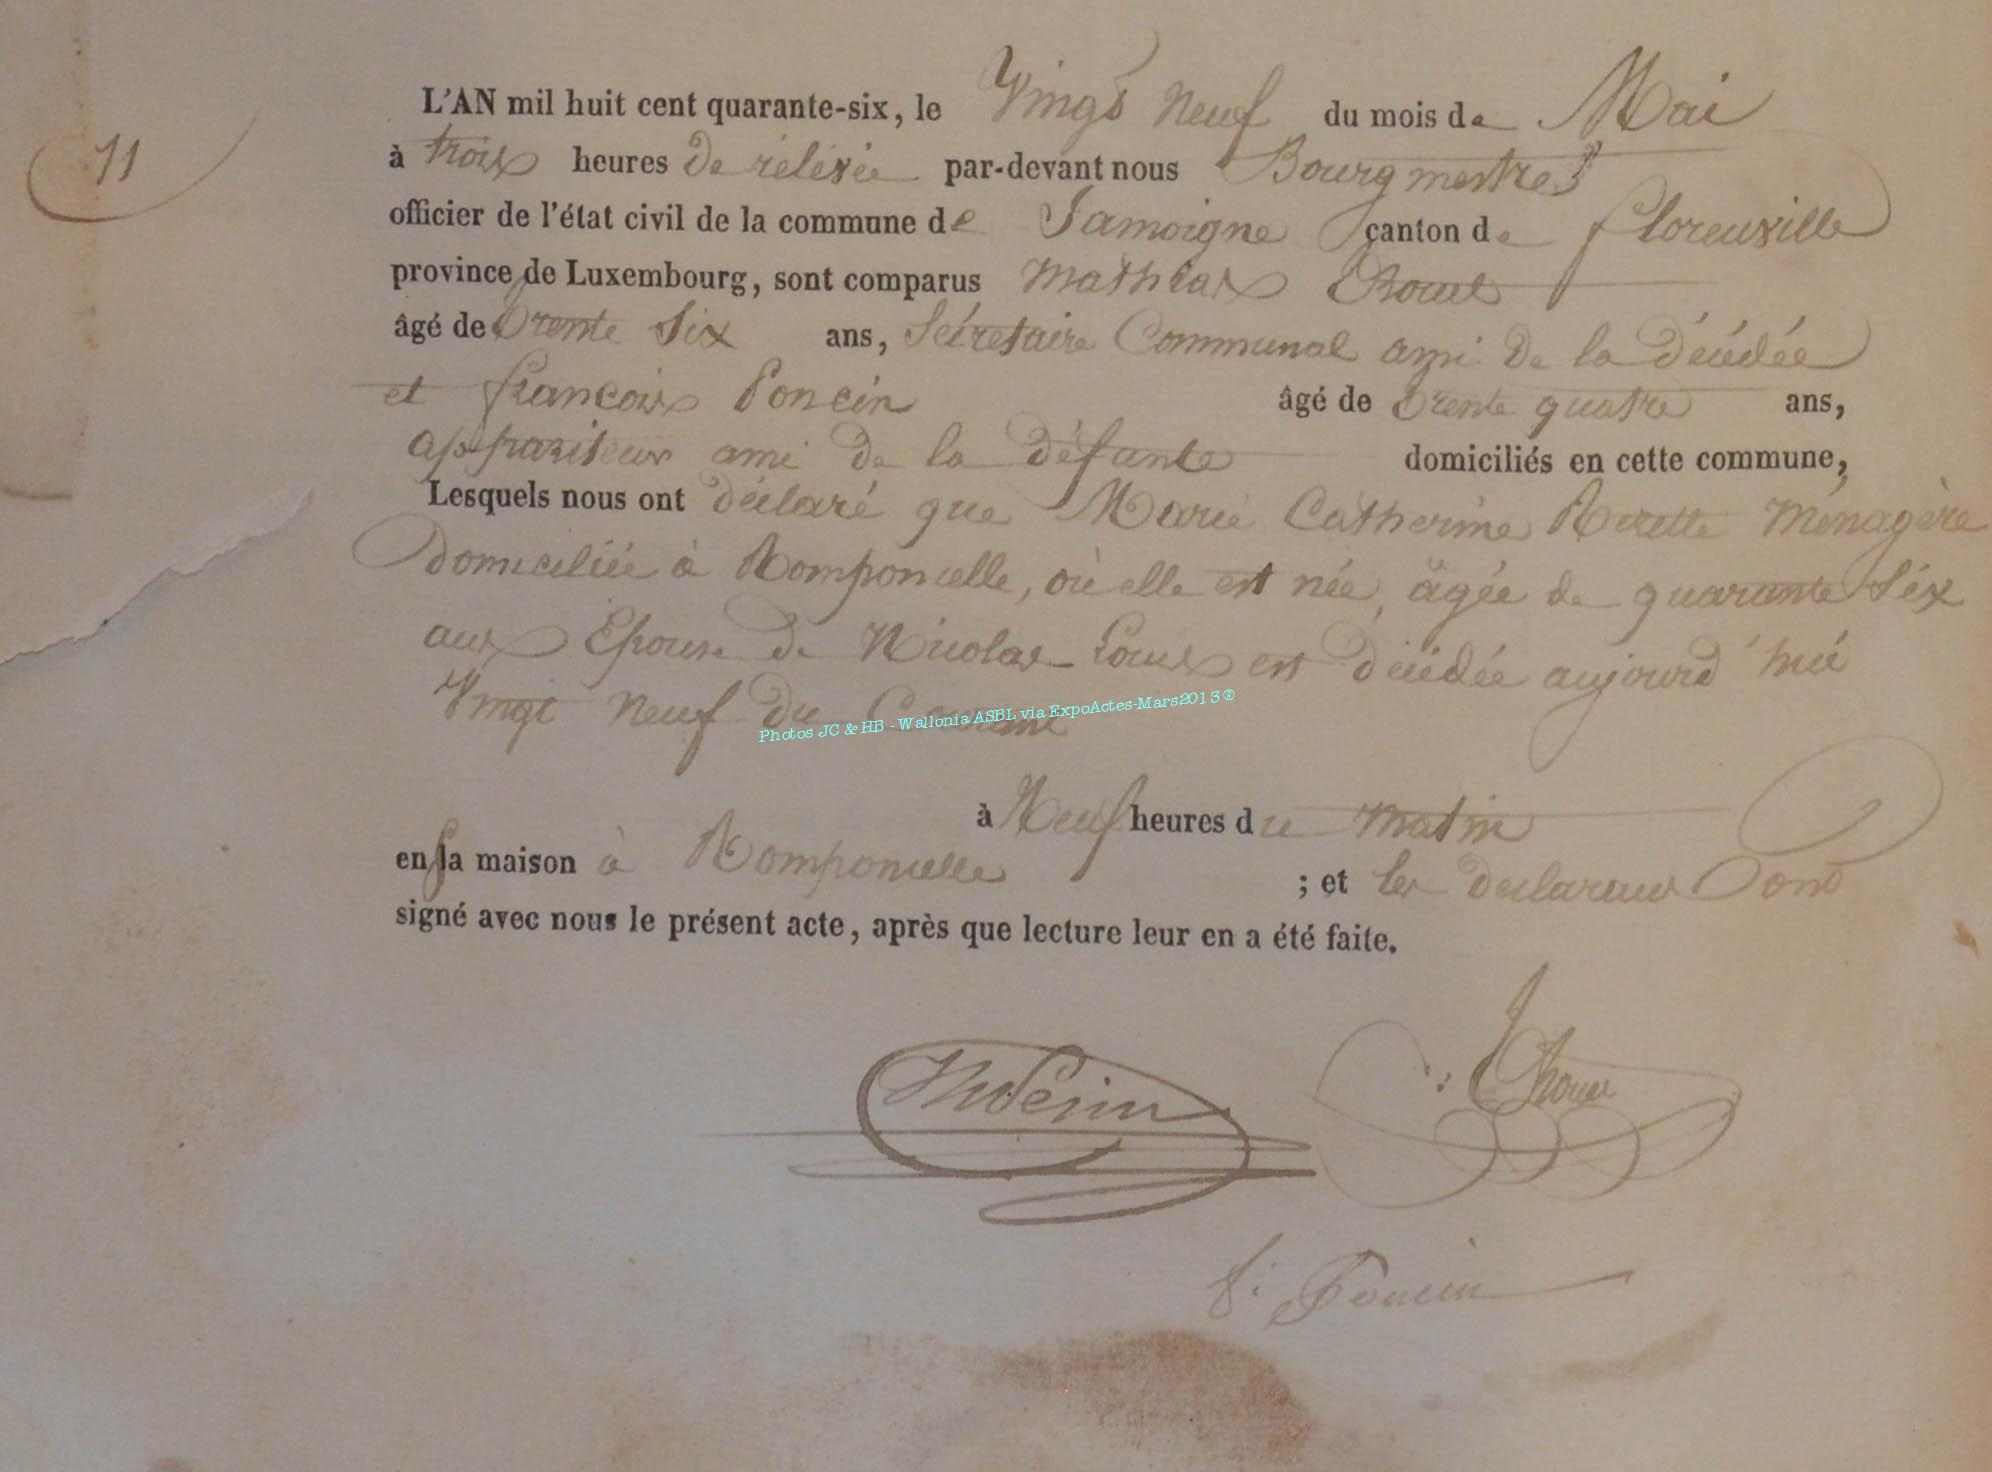 11
L'AN mil huit cent quarante-six, le Vingt Neuf du mois de Mai
à trois heures de rélevée par-devant nous Bourgmestre
officier de l'état civil de la commune de Jamoigne canton de florenville
province de Luxembourg, sont comparus Mathias
âgé de trente Six ans, Sécretaire Communal ami de la décédée
et françois Poncin âgé de trente quatre ans,
appariteur ami de la défunte domiciliés en cette commune,
Lesquels nous ont déclaré que Marie Catherine Ménagère
domiciliée à Romponcelle, où elle est née, âgée de quarante Six
ans Epouse de Nicolas Louis est décédée aujourd'hui
Vingt Neuf du Courant
Photos JC & HB - Wallonia ASBL via ExpoActes-Mars2013®
à Neuf heures du matin
en sa maison à Romponcelle ; et les declarans ont
signé avec nous le présent acte, après que lecture leur en a été faite.
f: Poncin